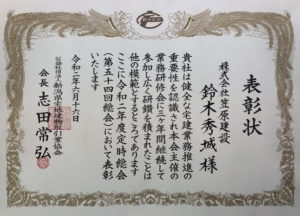 表彰状
株式会社笠原建設
鈴木秀城様
貴社は健全な宅建業務推進の
重要性を認識され本会主催の
業務研修会に三ヶ年間継続して
参加し広く研鑽を積まれたことは
他の模範とするところであります
ここに令和二年度定時総会
(第五十四回総会)において表彰
いたします
令和二年六月十六日
公益社団法人新潟県宅地建物取引業協会
会長志田常弘